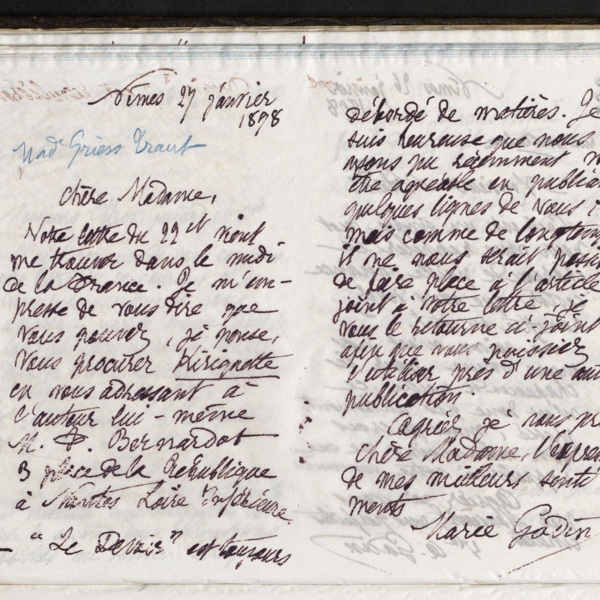 Nîmes 27 janvier
1898
Mad. Griess Traut
Chère Madame,
Votre lettre du 22 ct vient
me trouver dans le midi
de la France. Je m'em-
presse de vous dire que
vous pouvez, je pense,
vous procurer
en vous adressant à
l'auteur lui-même
M. P. Bernardot
3 place de la République
à Nantes Loire Inférieure.
"Le Devoir" est toujours
débordé de matières. Je
suis heureuse que nous
ayons pu récemment v
être agréable en publia
quelques lignes de vous ;
mais comme de longtem
il ne nous serait possi
de faire place à l'article
joint à votre lettre, je
vous le retourne ci-joint
afin que vous puissiez
l'utiliser près d'une aut
publication.
Agréez, je vous pr
chère Madame, l'expres
de mes meilleurs senti
ments
Marie Godin